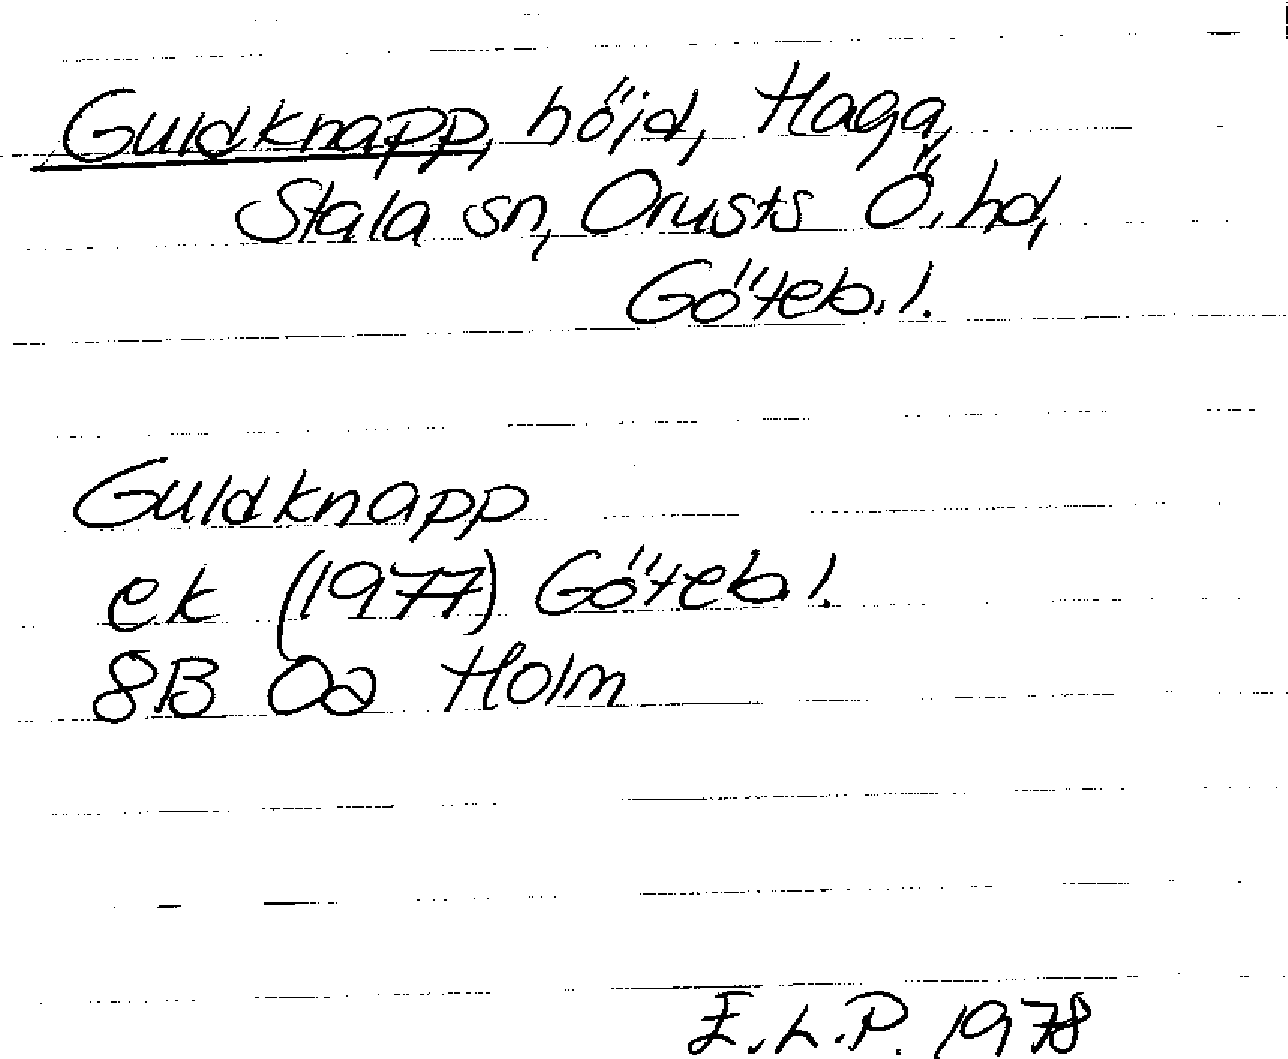 Guldknapp, höjd, Haga,
Stala sn, Orusts Ö. hd,
Göteb. l.
Guldknapp
ek (1977) Göteb l.
8B 0a Holm
E.L.P. 1978